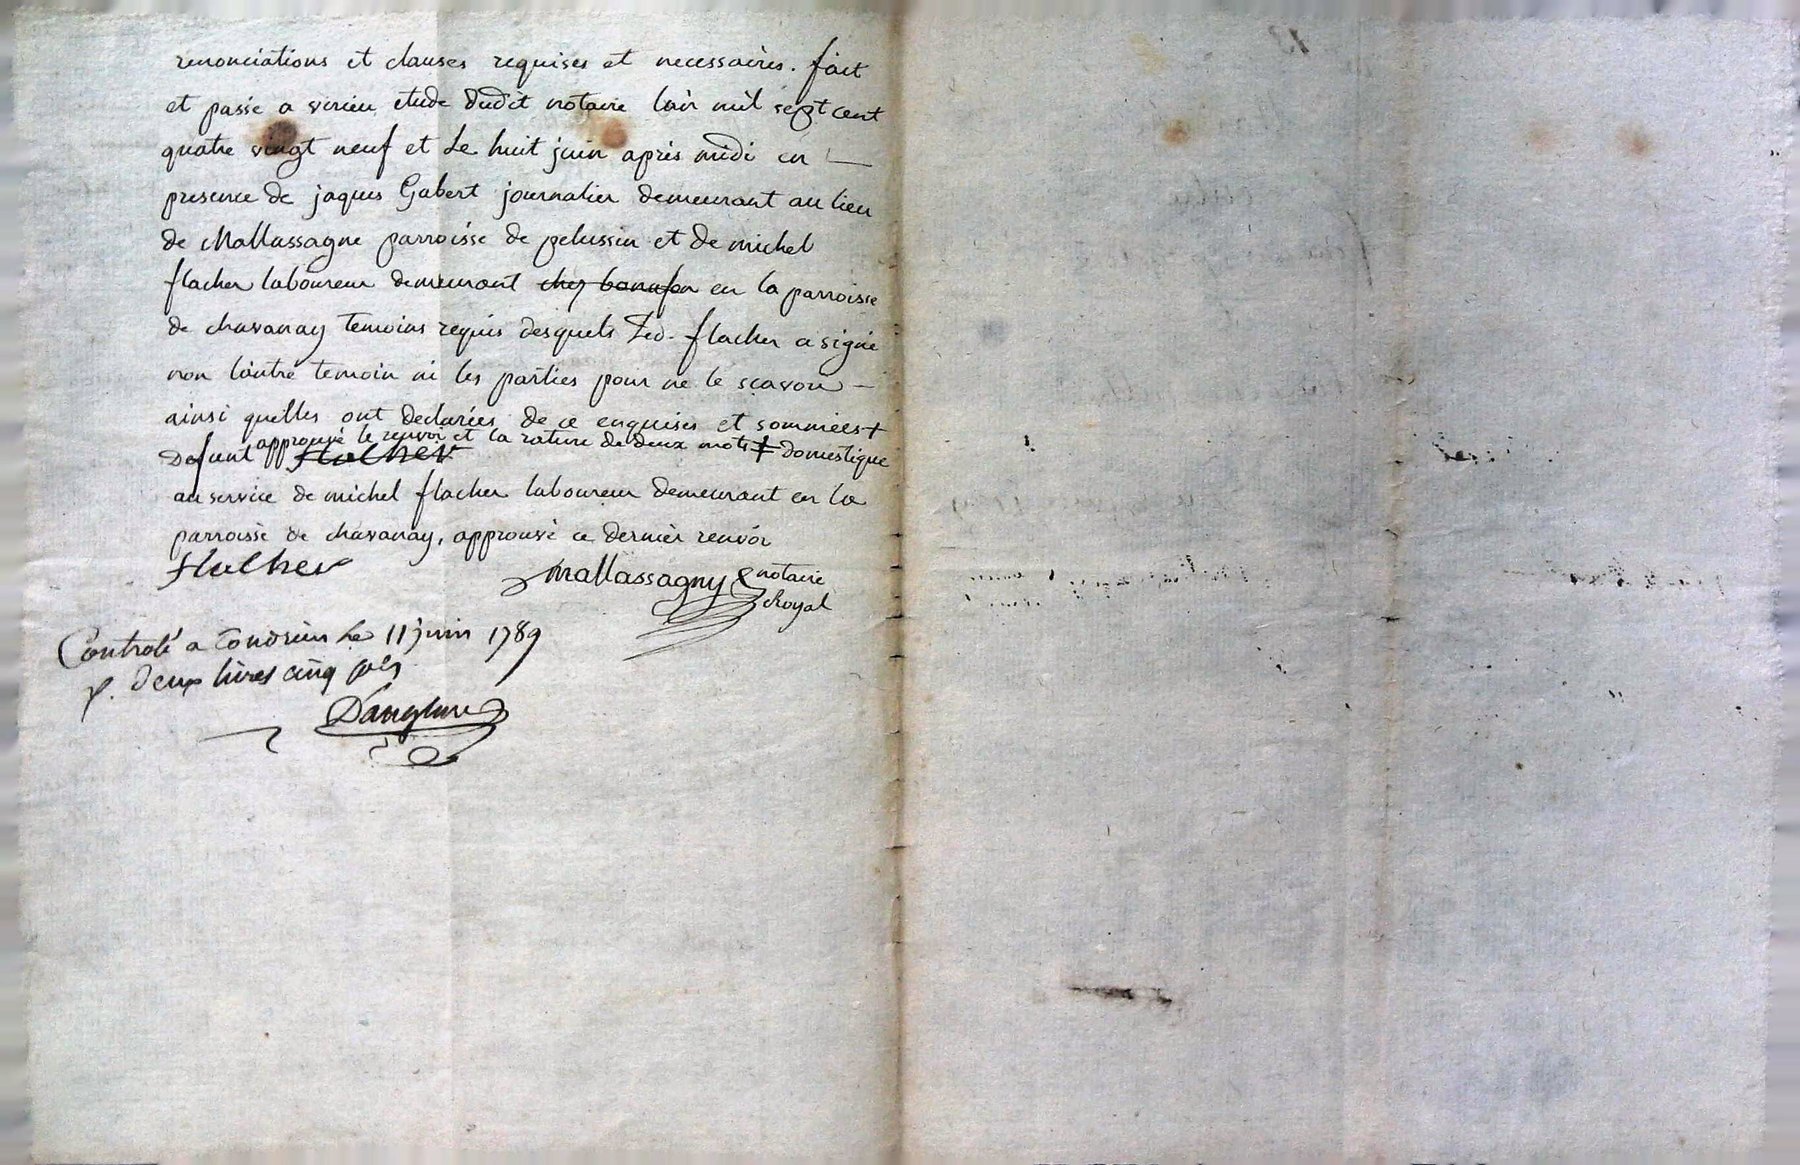 renonciations et clauses requises et necessaires. fait
et passé a virieu etude dudit notaire l'an mil sept cent
quatre vingt neuf et le huit juin après midi en
presence de jaques Gabert journalier demeurant au lieu
de Mallassagne parroisse de pelussin et de michel
flacher laboureur demeurant chez en la parroisse
de chavanay temoins requis desquels led. flacher a signé
non l'autre temoin ni les parties pour ne le sçavoir -
ainsi quelles ont declarées de ce enquises et sommées +
approuvé le renvoi et la rature de deux mots ‡ domestique
defunt app flacher
au service de michel flacher laboureur demeurant en la
parroisse de chavanay, approuvé ce dernier renvoi
flacher
Mallassagny notaire
Royal
Controlé a Condrieu le 11 juin 1789
deux livres cinq sols